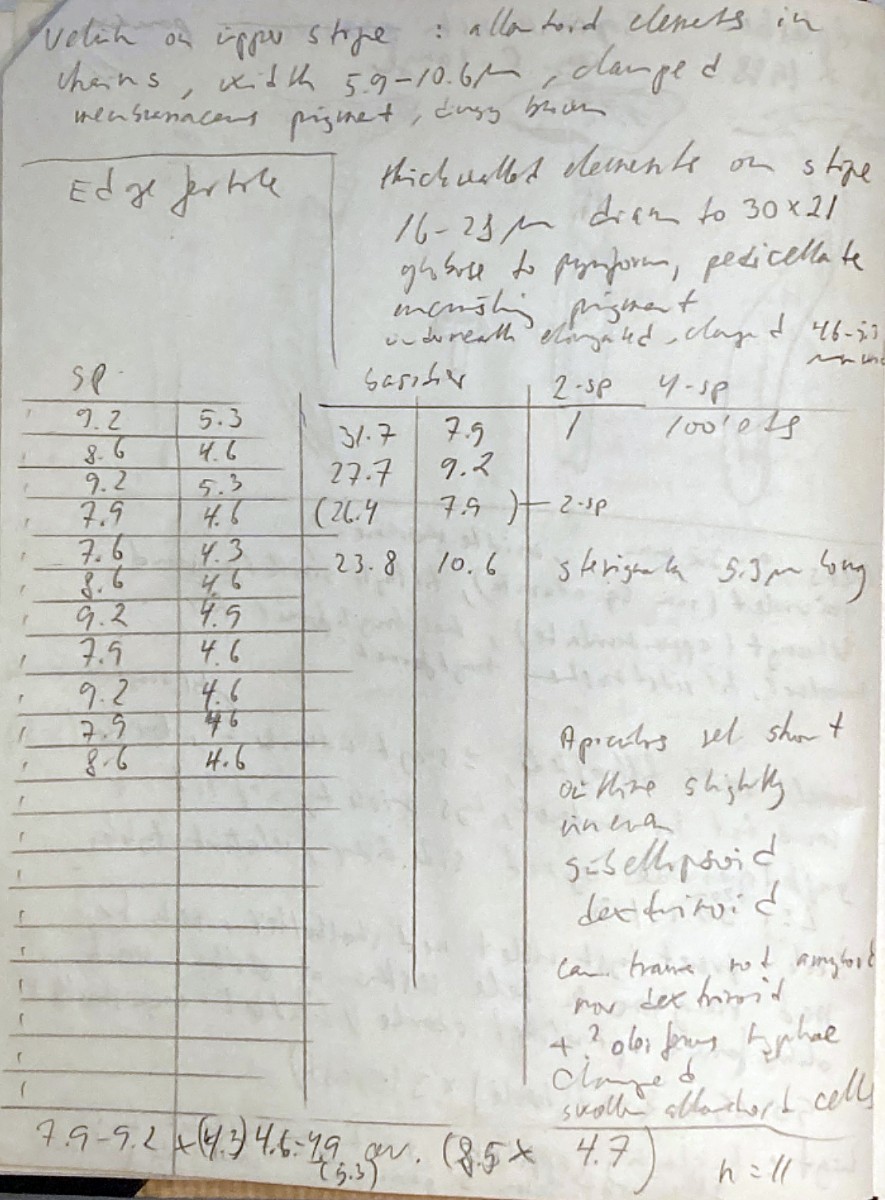 Velum on upper stipe : allantoid elements in
chains, width 5.9-10.6 µm, clamped
membranaceous pigment, dingy brown
Edge fertile
thickwalled elements on stipe
16-23 µm diam to 30 x 21
globose to pyriform, pedicellate
incrusting pigment
underneath elongated, clamped 4.6-5.3
sp. basidia 2-sp 4-sp
9.2 5.3 31.7 7.9 1 100'ets
8.6 4.6 27.7 9.2
9.2 5.3
7.9 4.6 (26.4 7.9) - 2-sp
7.6 4.3 23.8 10.6 sterigmata 5.3 µm long
8.6 4.6
9.2 4.9
7.9 4.6
9.2 4.6
7.9 4.6
8.6 4.6
Apiculus rel short
outline slightly
uneven
subellipsoid
dextrinoid
cap trama not amyloid
nor dextrinoid
+ ? oleiferous hyphae
clamped
swollen allantoid cells
7.9-9.2 x (4.3) 4.6-4.9 (5.3) av. (8.5 x 4.7) n = 11